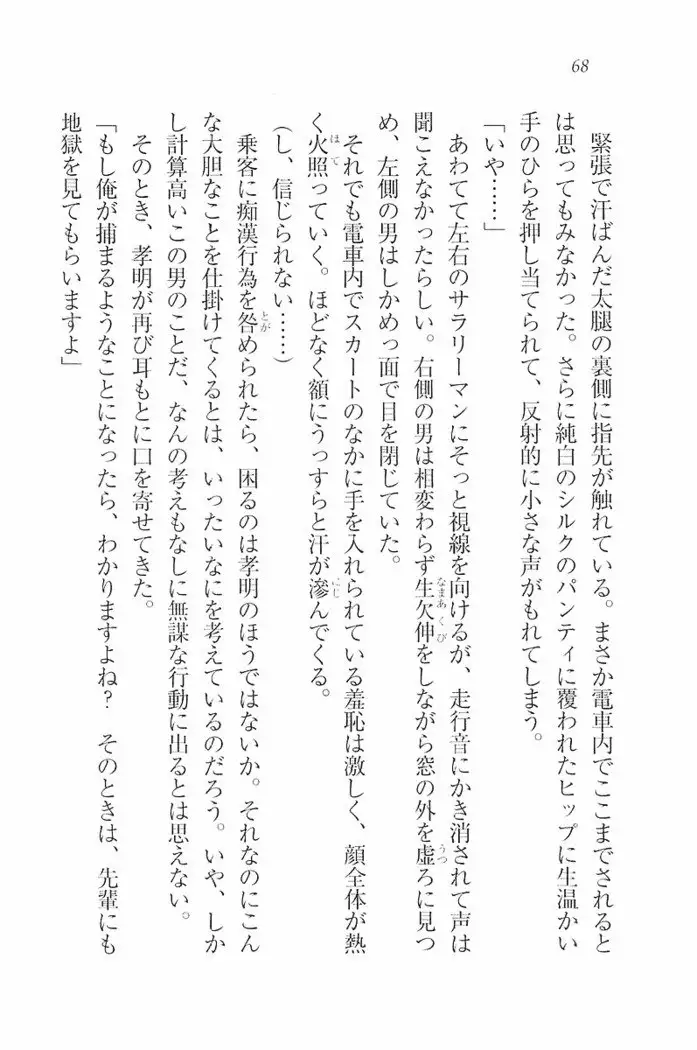 68
緊張で汗ばんだ太腿の裏側に指先が触れている。まさか電車内でここまでされると
は思ってもみなかった。さらに純白のシルクのパンティに覆われたヒップに生温かい
手のひらを押し当てられて、反射的に小さな声がもれてしまう。
「いや……」
あわてて左右のサラリーマンにそっと視線を向けるが、走行音にかき消されて声は
聞こえなかったらしい。右側の男は相変わらず生欠伸をしながら窓の外を虚ろに見つ
め、左側の男はしかめっ面で目を閉じていた。
それでも電車内でスカートのなかに手を入れられている羞恥は激しく、顔全体が熱
く火照っていく。ほどなく額にうっすらと汗が滲んでくる。
(し、信じられない……)
乗客に痴漢行為を咎められたら、困るのは孝明のほうではないか。それなのにこん
な大胆なことを仕掛けてくるとは、いったいなにを考えているのだろう。いや、しか
し計算高いこの男のことだ、なんの考えもなしに無謀な行動に出るとは思えない。
そのとき、孝明が再び耳もとに口を寄せてきた。
「もし俺が捕まるようなことになったら、わかりますよね？　そのときは、先輩にも
地獄を見てもらいますよ」